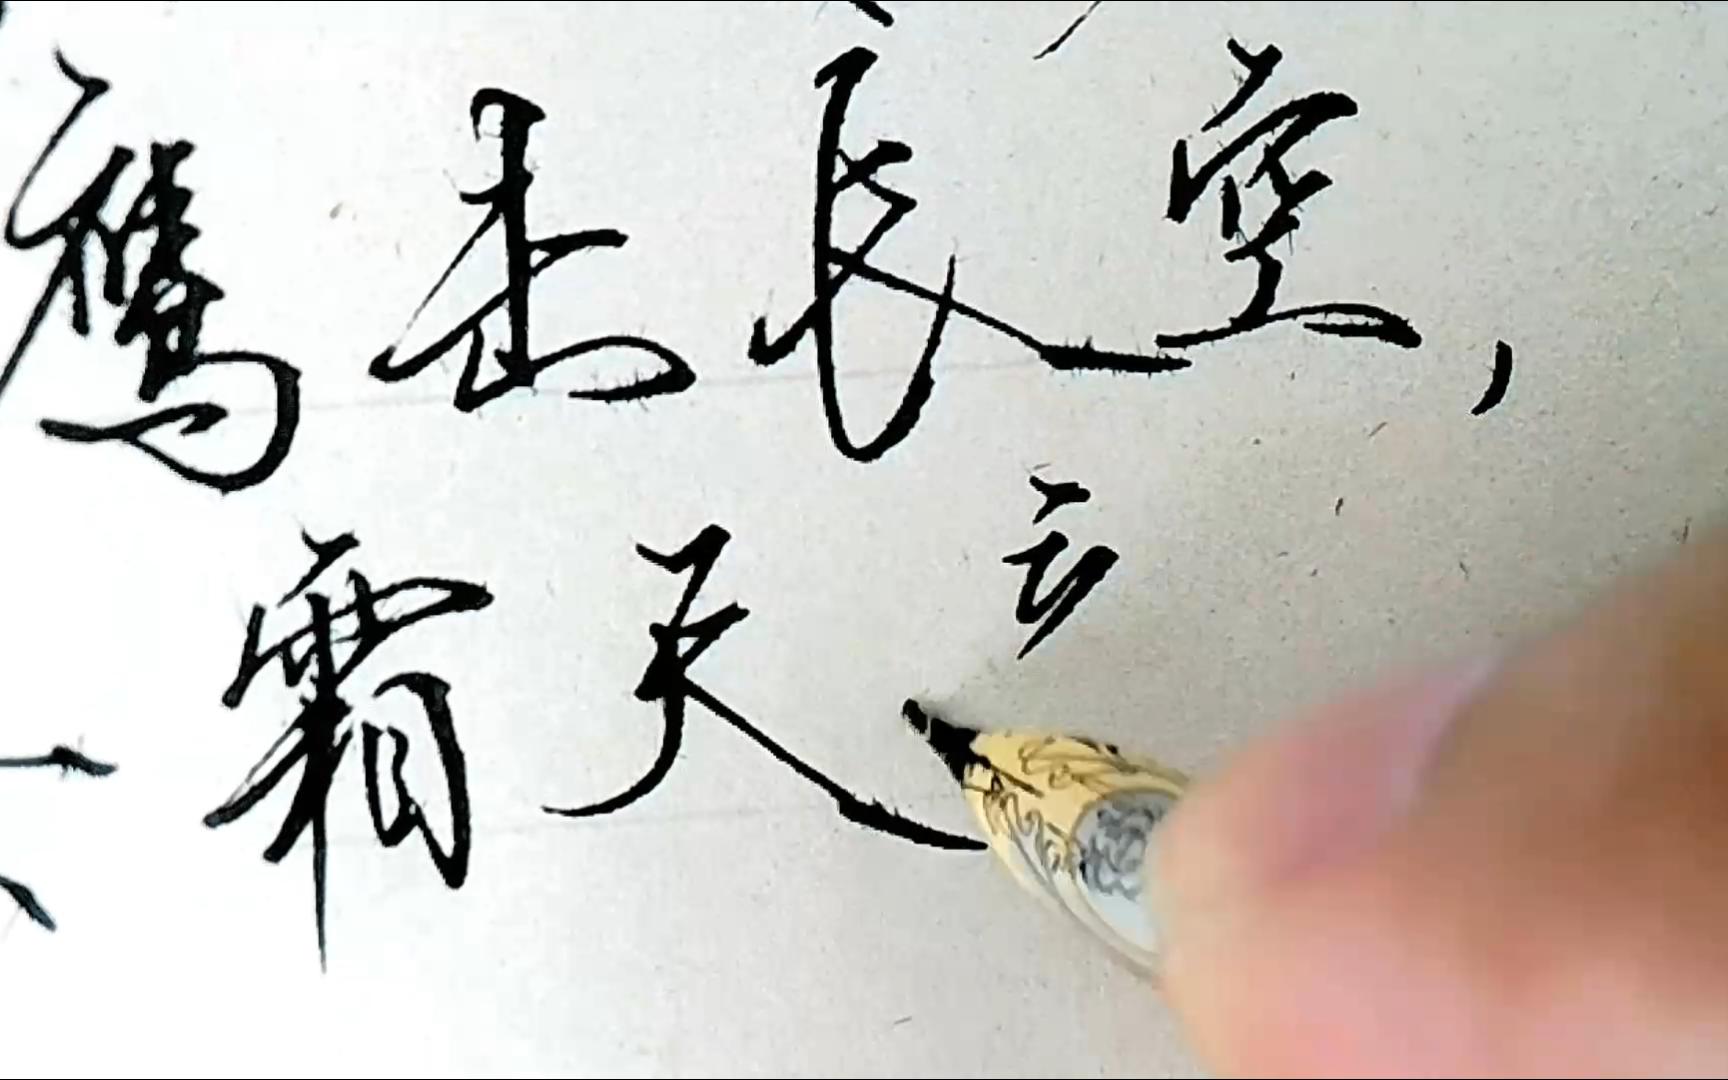 鹰击长空，
霜天